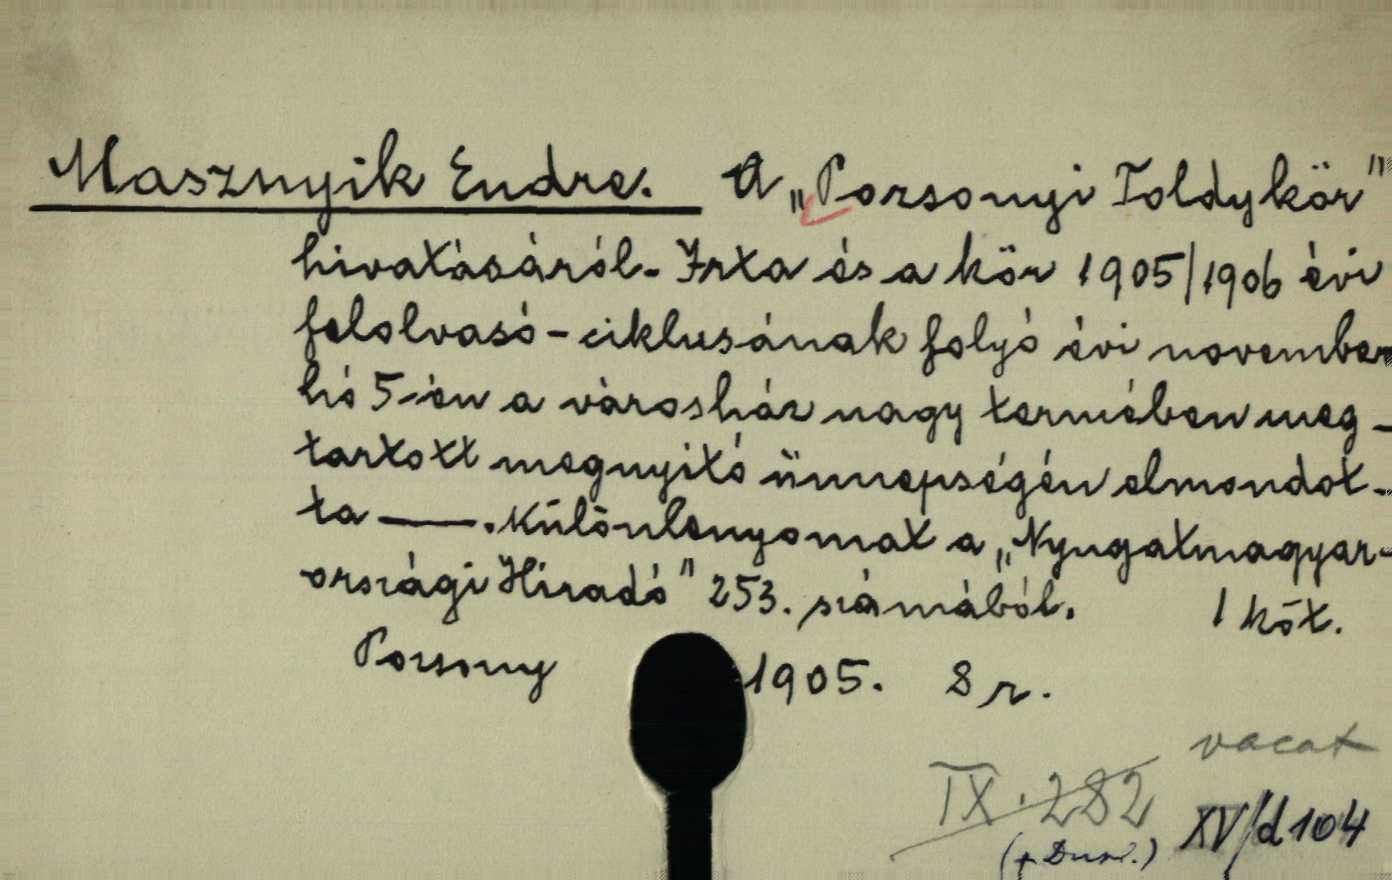 Masznyik Endre. A „Pozsonyi Toldykör"
hivatásáról. Irta és a kör 1905/1906 évi
felolvasó-ciklusának folyó évi november
hó 5-én a városház nagy termében meg-
tartott megnyitó ünnepségén elmondot-
ta —. Különlenyomat a „Nyugatmagyar-
országi Hiradó" 253. számából. 1 köt.
Pozsony 1905. 8 r.
vacat
IX. 282
XV/d 104